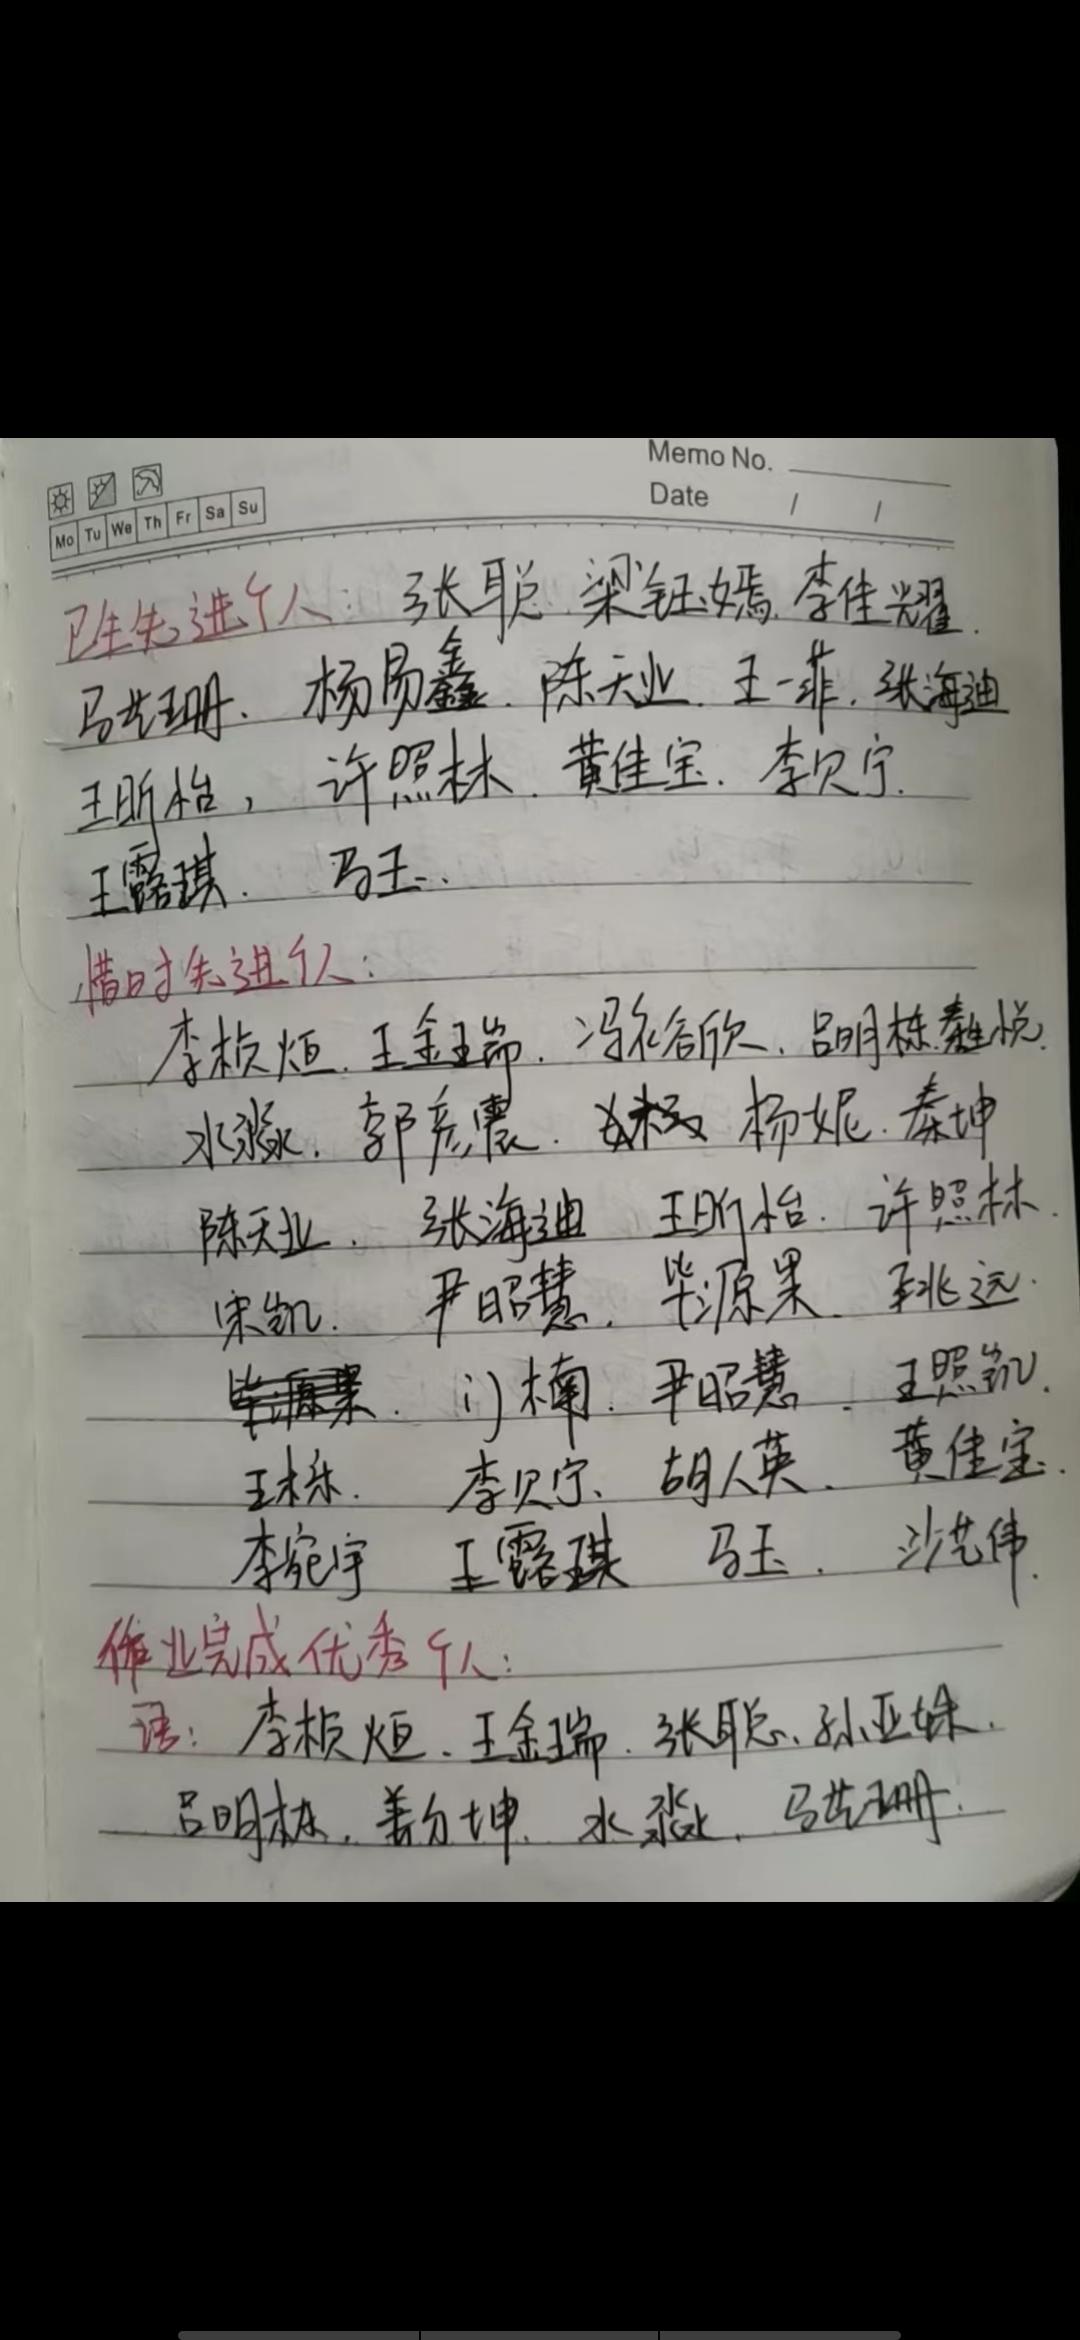 Memo No.
Date / /
Mo Tu We Th Fr Sa Su
卫生先进个人: 张聪. 梁钰嫣. 李佳耀.
马艺珊. 杨易鑫. 陈天业. 王一菲. 张海迪
王昕怡, 许照林. 黄佳宝. 李贝宁.
王露琪. 马玉..
惜时先进个人:
李桢烜. 王金瑞. 冯谷欣. 吕明栋. 悦.
水淼. 郭彦震. 杨妮. 秦坤
陈天业. 张海迪 王昕怡. 许照林.
宋凯. 尹昭慧. 毕源果. 远.
门楠. 尹昭慧. 王照凯.
王栎. 李贝宁. 胡人英. 黄佳宝.
李宛宇 王露琪 马玉. 沙艺伟.
作业完成优秀个人:
语: 李桢烜. 王金瑞. 张聪. 孙亚姝.
吕明栋. 姜尔坤. 水淼. 马艺珊.